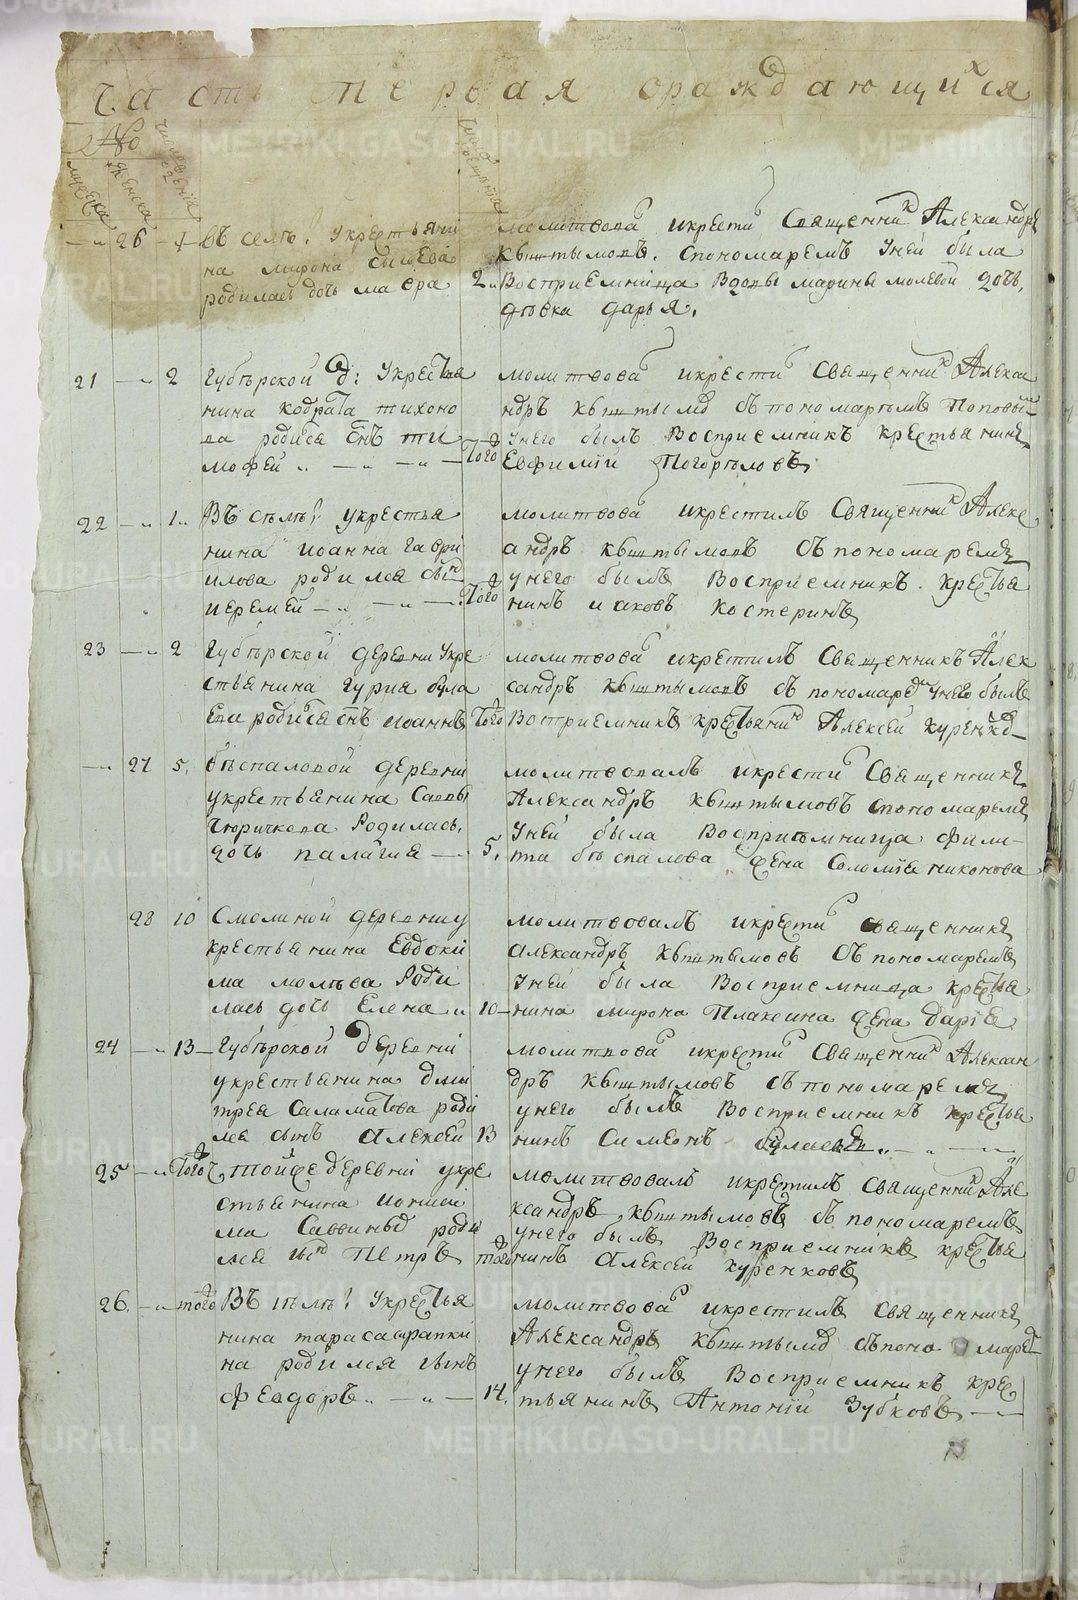 часть первая оражда́ющихся
№
мужеска
женска
число рожденія
число крещенія
26
въ селѣ: укрестьяни
на мирона
родилась дочь мавра
2
молитвовал икрести священник Александр
кыштымовъ. спономаремъ уней была
восприемница вдовы марины молевой дочь,
дѣвка дарья.
21
2
губѣрской д: укрестья
нина кодрата тихоно
ва родися снъ ти
мофей
того
молитвова икрести священник Алекса
ндръ кыштымо съпономаремъ поповы
унего былъ восприемникъ крестьянинъ
Евфимій Погорѣловъ
22
1
Въ селѣ укрестья
нина иоанна гаври
илова родился сын
иеремей
того
молитвова икрестилъ священник Алекс
андръ кыштымовъ съпономаремъ
унего былъ восприемникъ. крестья
нинъ иаковъ костеринъ
23
2
губѣрской деревни укре
стьянина гурия була
ева родися снъ иоаннъ
того
молитвова икрестилъ священникъ Алек
сандръ кыштымовъ съпономаре унего былъ
восприемникъ крестьянин Алексей куренко
27
5.
бѣспаловой деревни
укрестьянина Саввы
чюричкова родилась.
дочь палагия
5.
молитвовалъ икрести священникъ
Александръ кыштымовъ спономаремъ
уней была восприѣмница фили
та бѣспалова жена соломия никонова
28
10
Смолиной деревниу
крестьянина Евдоки
ма молѣва роди
лась дочь Елена
10
молитвовалъ икрести священникъ
александръ кыштымовъ съпономаремъ
уней была восприемница крестья
нина мирона Плаксина жена дарія
24
13
губѣрской деревни
укрестьянина дми
трея саламатова роди
лся сынъ алексей
13
молитвова икрести священник Алексан
дръ кыштымовъ съпономаремъ
унего былъ восприемникъ крестья
нинъ симеонъ булаевъ
25
того
тойже деревни укре
стьянина
ма саввины роди
лся сын Петръ
того
молитвовалъ икрестилъ священник Але
ксандръ кыштымовъ съпономаремъ
унего былъ восприемникъ крестья
нинъ алексей куренковъ
26.
того
Въ селѣ укрестья
нина тараса
на родился сынъ
феодоръ
14.
молитвова икрестилъ священникъ
Александръ кыштымо съпоно марем
унего былъ восприемникъ крес
тьянинъ Антоній Зубковъ
METRIKI.GASO-URAL.RU